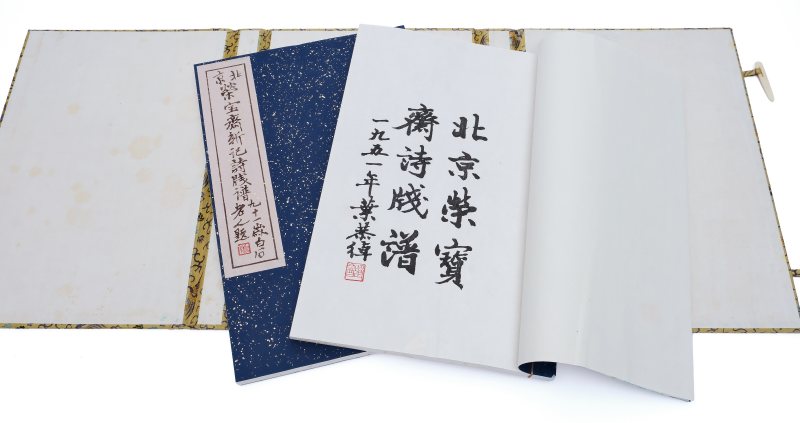 北京榮宝齋新记詩牋譜
九十一歲白石
老人題
北京榮寶
齋詩牋譜
一九五一年葉恭綽